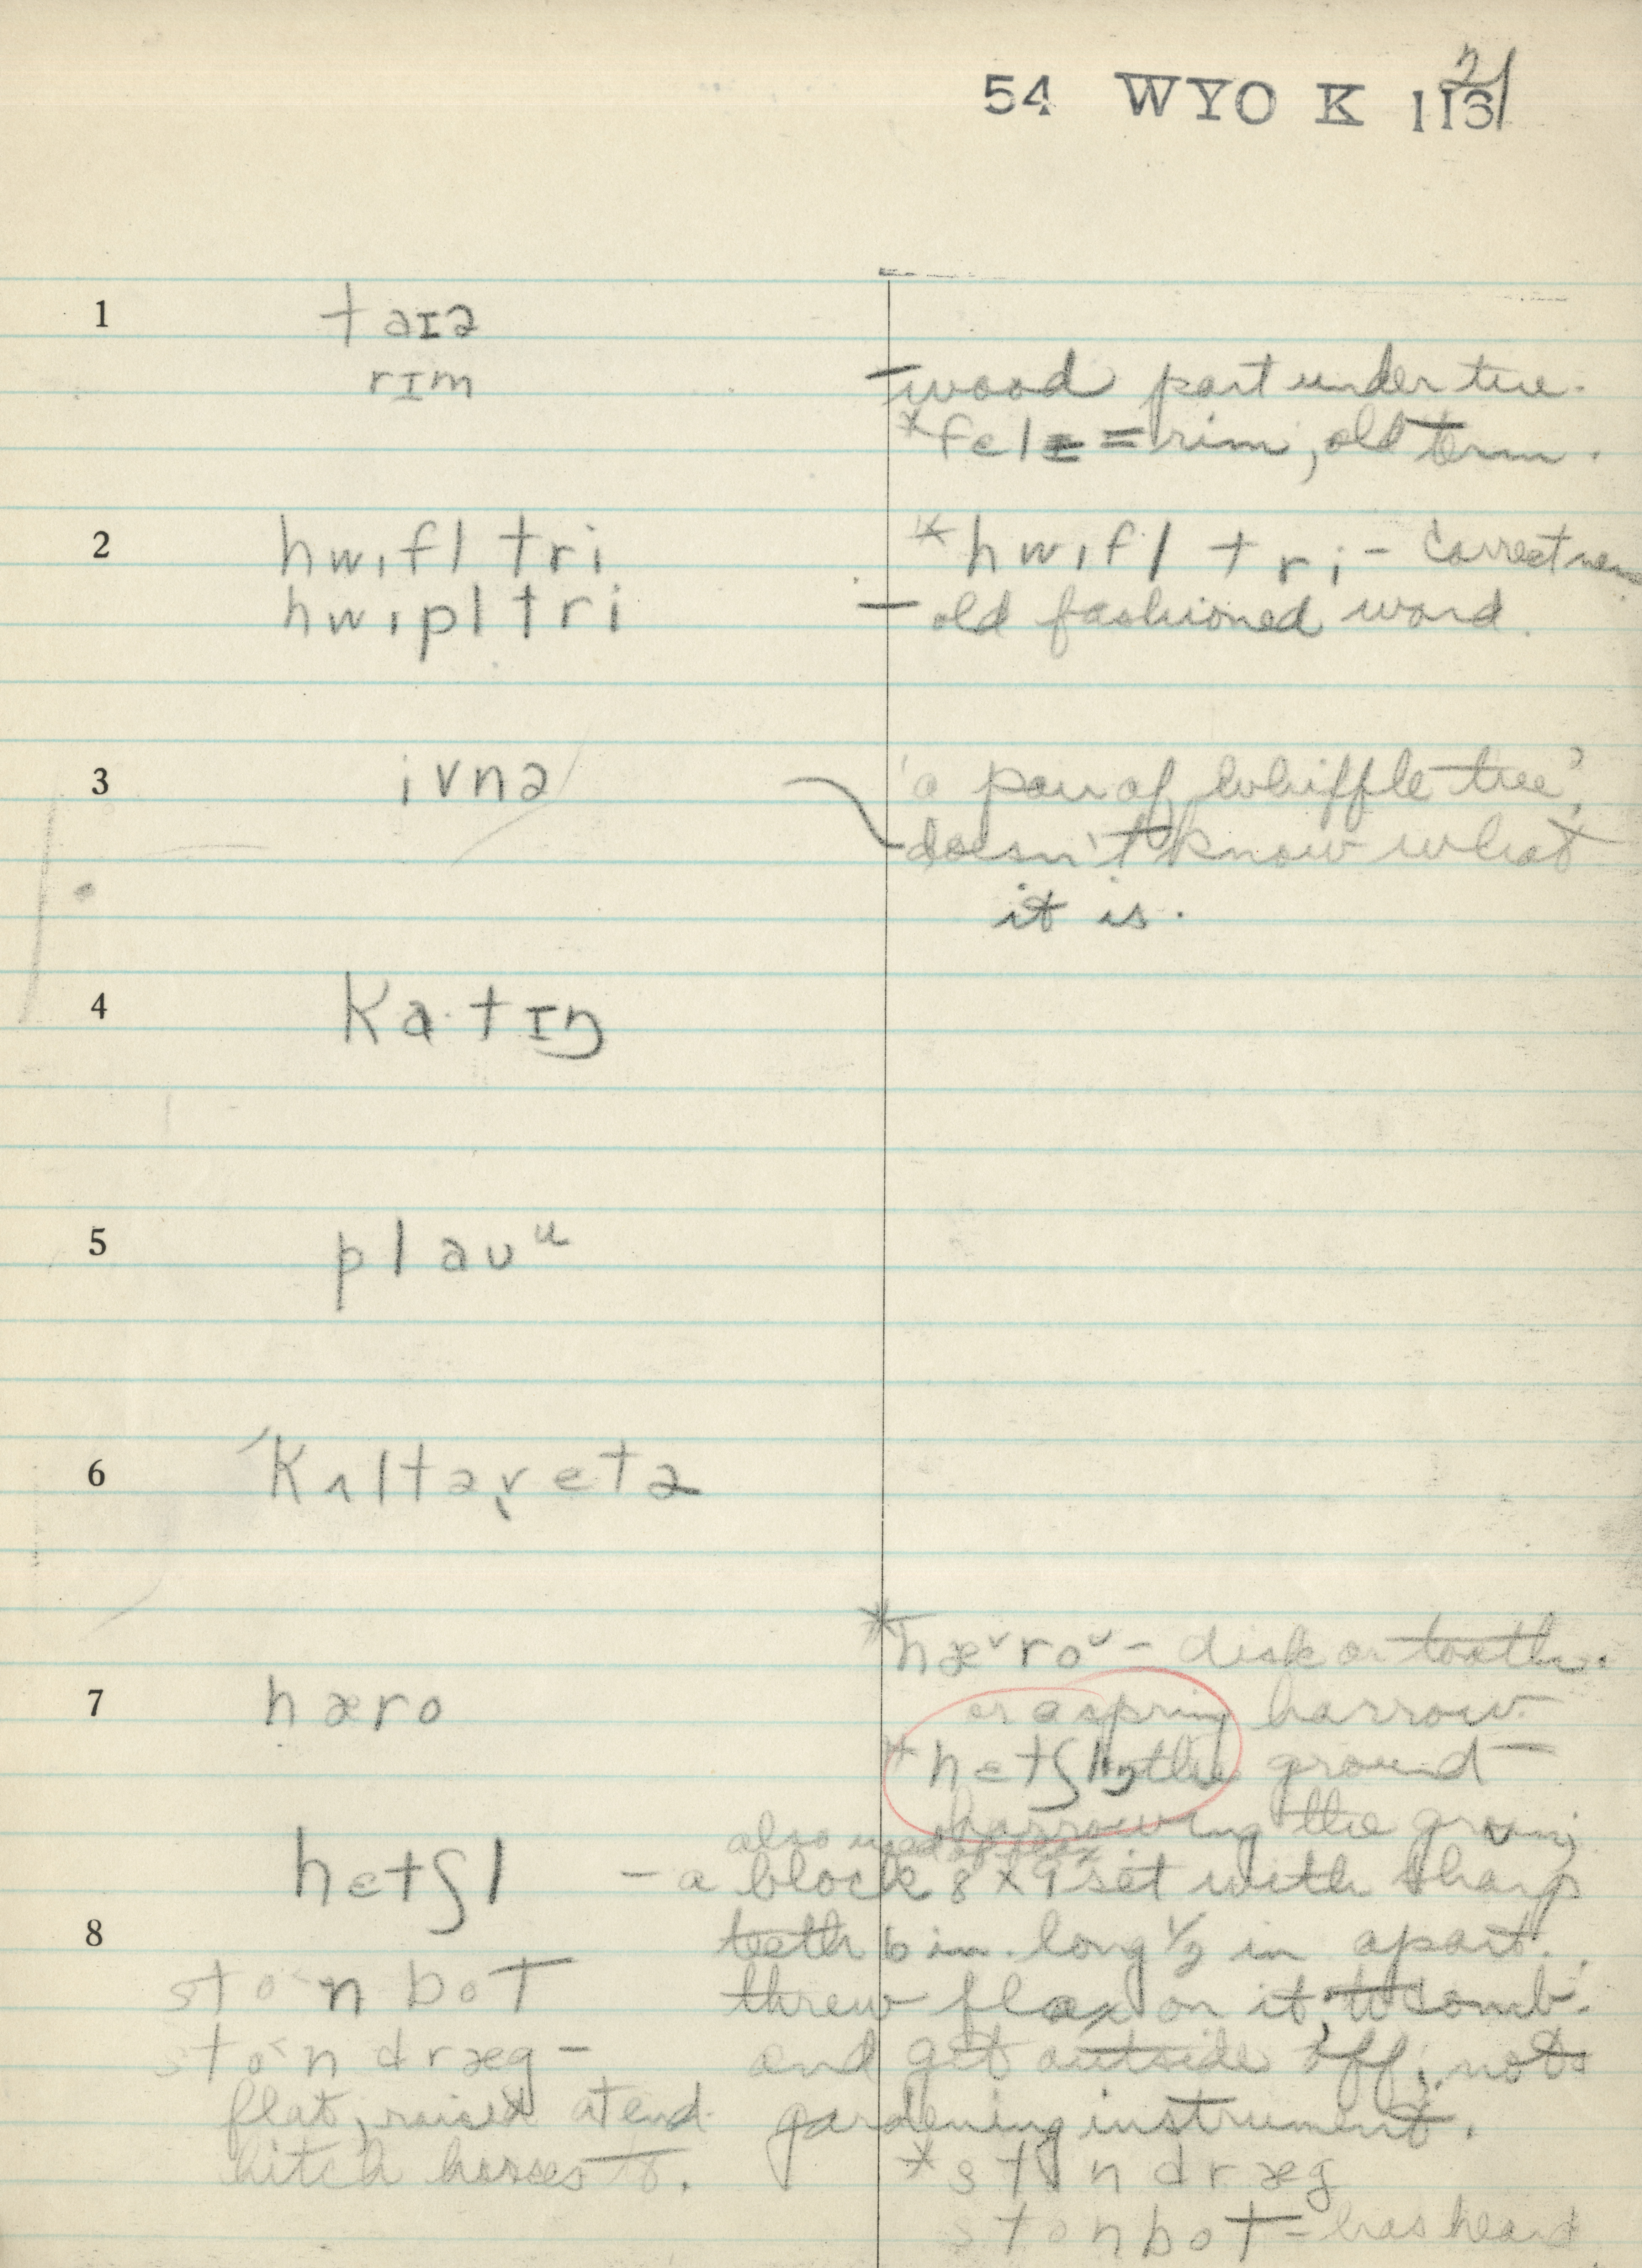 54 WYO K 113 21
1 taɪə
rɪm
– wood part under tire.
*felɪ = rim, old term.
2 hwɪfl tri
*hwɪfl tri – correct
hwɪpl tri
– old fashioned word.
3 ivnə
'a pair of whiffle tree',
doesn't know what
it is.
4 ka·tɪŋ
5 plaʊᵘ
6 'kʌltəveɪtə
7 hæro
*hæ˅ro˅ – disk or tooth.
or a spring harrow.
*hetʃlɪŋ the ground –
harrowing the
also used
hetʃl – a block 8 x 9 set with sharp
8 teeth 6 in. long ½ in apart.
sto˂n bot
threw flax on it, to comb.
sto˂n dræg –
and get outside off; not
flat, raised at end
gardening instrument.
hitch horses to.
*ston dræg
ston bot – has heard